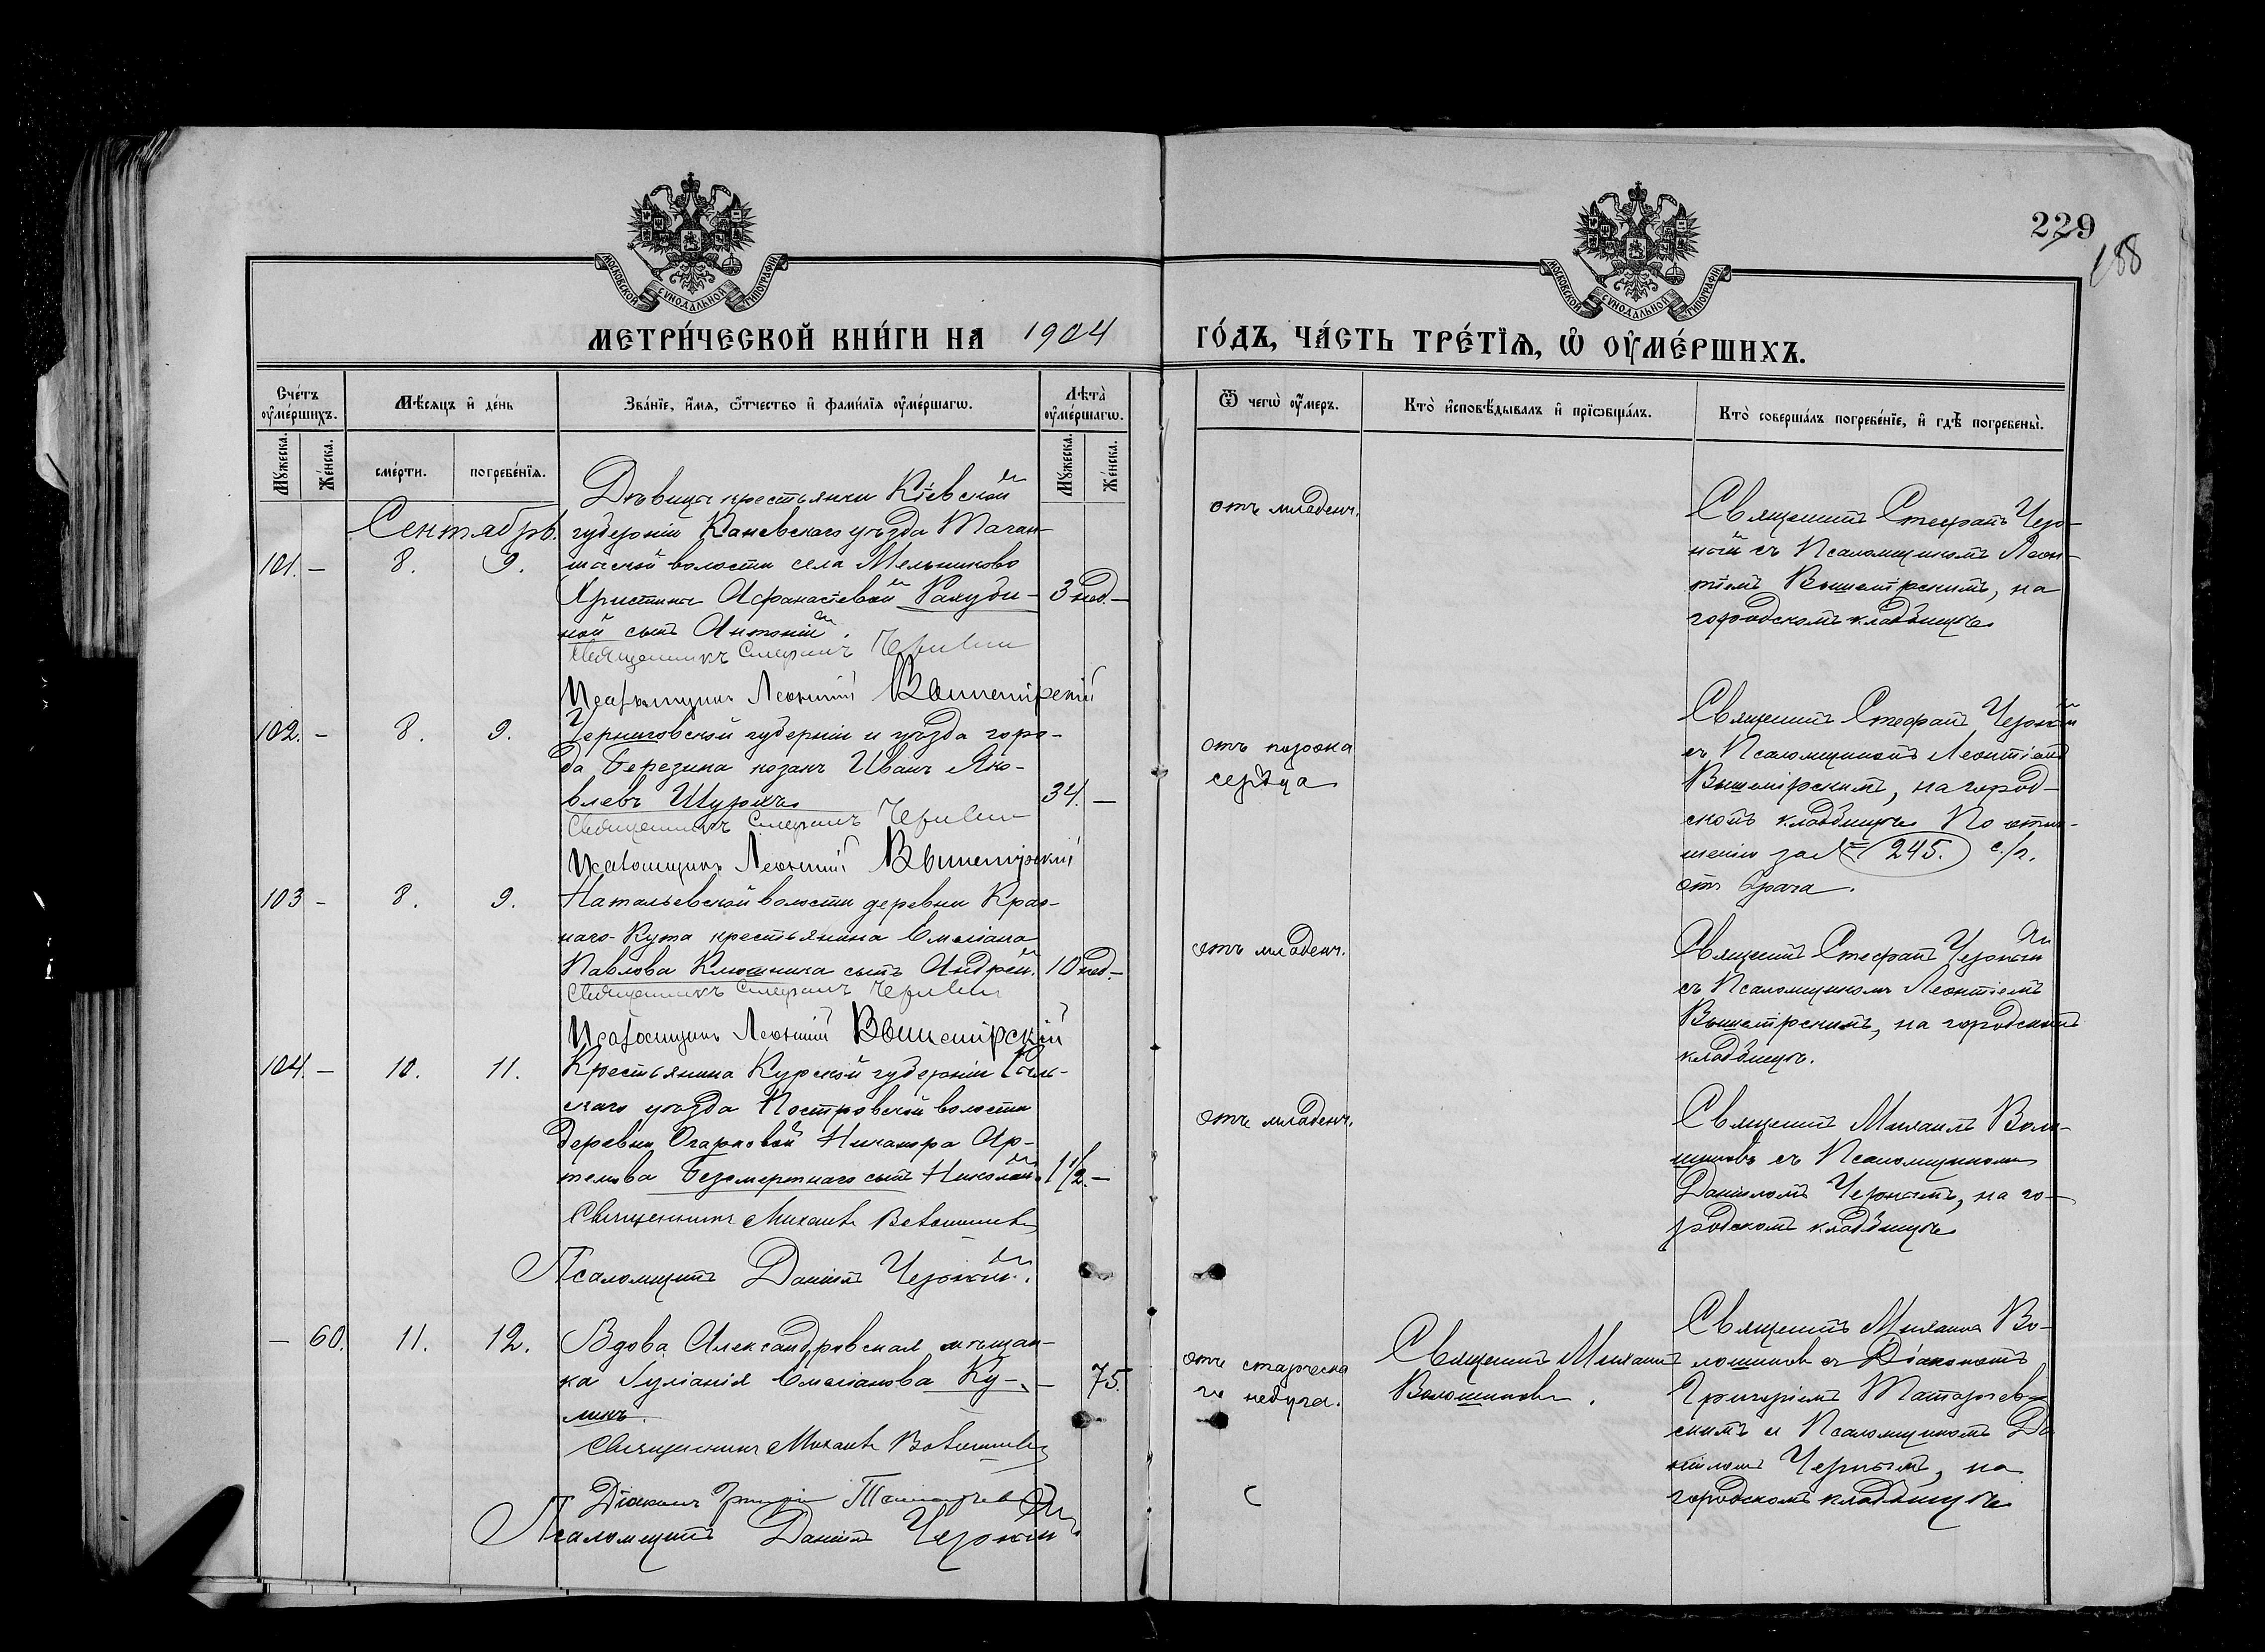 229
188
МОСКОВСКОЙ СУНОДАЛЬНОЙ ТИПОГРАФІИ
МОСКОВСКОЙ СУНОДАЛЬНОЙ ТИПОГРАФІИ
МЕТРИ́ЧЕСКОЙ КНИ́ГИ НА 1904
ГО́ДЪ, ЧА́СТЬ ТРЕ́ТІѦ, Ѡ ОУМЕ́РШИХЪ.
Сче́тъ оуме́ршихъ.
Мѣ́сѧцъ и де́нь
Зва́нїе, и́мѧ, ѻ́тчество и фами́лїѧ оуме́ршагѡ.
Лѣта̀ оуме́ршагѡ.
Ѿ чегѡ̀ оу́меръ.
Кто̀ и҆сповѣ́дывалъ и҆ прїѡбща́лъ.
Кто̀ соверша́лъ погребе́нїе, и҆ гдѣ̀ погребены̀.
Мꙋ́жеска.
Же́нска.
сме́рти.
погребе́нїѧ.
Мꙋ́жеска.
Же́нска.
Сентябрь.
101. – 8. 9.
Дѣвицы крестьянки Кіевской
губерніи Каневскаго уѣзда Таган-
волости села Мельниково
Христины Афанасіевой
ной сынъ Антоній.
Священникъ Стефанъ Черный
Псаломщикъ Леонтій Вышемірскій
3 нед. –
отъ младенч.
Священникъ Стефанъ Чер-
ный съ Псаломщикомъ Леон-
тіемъ Вышемірскимъ, на
городскомъ кладбищѣ
102. – 8. 9.
Черниговской губерніи и уѣзда горо-
да Березина козакъ Иванъ Яко-
влевъ
Священникъ Стефанъ Черный
Псаломщикъ Леонтій Вышемірскій
34. –
отъ порока
сердца
Священникъ Стефанъ Черный
съ Псаломщикомъ Леонтіемъ
Вышемірскимъ, на город-
скомъ кладбищѣ По отно-
шенію за № 245. с/г.
отъ врача.
103 – 8. 9.
Натальевской волости деревни Крас-
наго-Кута крестьянина Емеліана
Павлова Клюшника сынъ Андрей.
Священникъ Стефанъ Черный
Псаломщикъ Леонтій Вышемірскій
10 нед. –
отъ младенч.
Священникъ Стефанъ Черный
съ Псаломщикомъ Леонтіемъ
Вышемірскимъ, на городскомъ
кладбищѣ.
104. – 10. 11.
Крестьянина Курской губерніи Рыль-
скаго уѣзда волости
деревни Огарковой Никанора Ар-
темова Безсмертнаго сынъ Николай.
Священникъ Михаилъ Волошиновъ
Псаломщикъ Даніилъ Черный.
1 1/2. –
отъ младенч.
Священникъ Михаилъ Воло-
шиновъ съ Псаломщикомъ
Даніиломъ Чернымъ, на го-
родскомъ кладбищѣ
– 60. 11. 12.
Вдова Александровская мѣщан-
ка Іуліанія Емеліанова Ку-
ликъ.
Священникъ Михаилъ Волошиновъ
Діаконъ Григорій
Псаломщикъ Даніилъ Черный
– 75.
отъ старческа
го недуга.
Священникъ Михаилъ
Волошиновъ.
Священникъ Михаилъ Во-
лошиновъ съ Діакономъ
Григоріемъ Татарчев-
скимъ и Псаломщикомъ Да
ніиломъ Чернымъ, на
городскомъ кладбищѣ